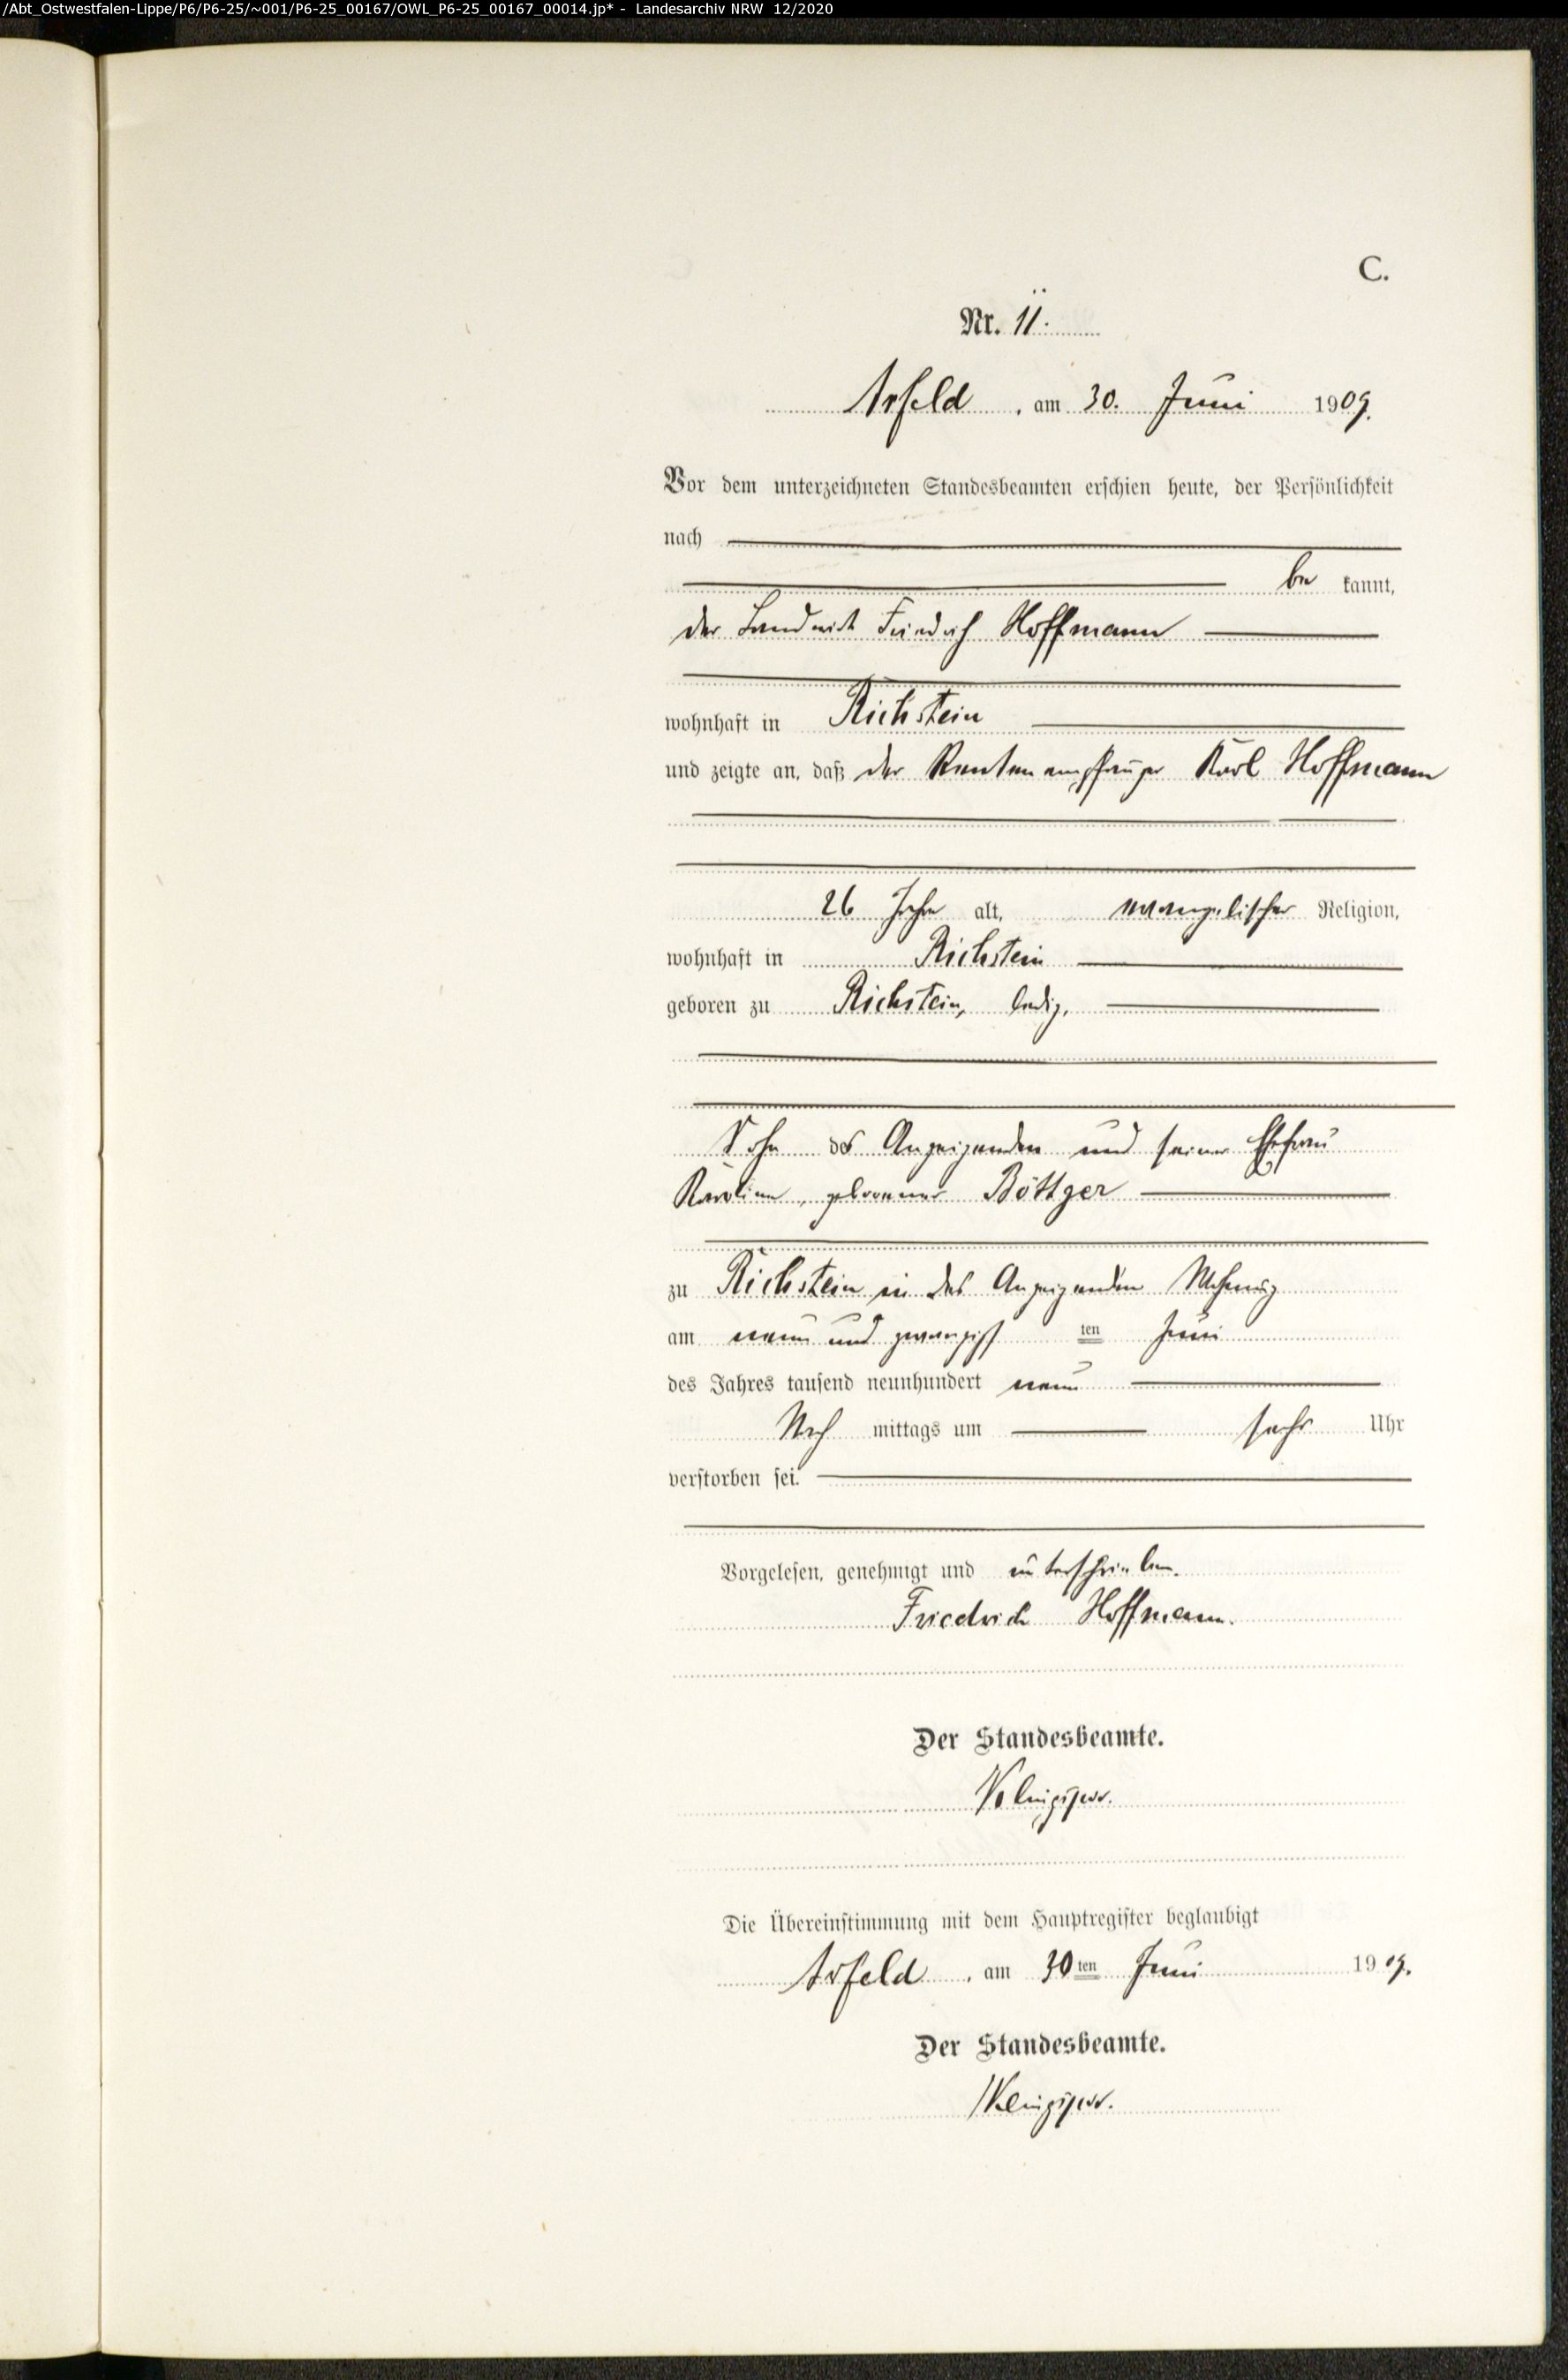 /Abt_Ostwestfalen-Lippe/P6/P6-25/~001/P6-25_00167/OWL_P6-25_00167_00014.jp* - Landesarchiv NRW 12/2020
C.
Nr. 11.
Arfeld, am 30. Juni 1909.
Vor dem unterzeichneten Standesbeamten erschien heute, der Persönlichkeit
nach
be kannt,
der Landwirt Friedrich Hoffmann
wohnhaft in Richstein
und zeigte an, daß der Rentenempfänger Karl Hoffmann
26 Jahre alt, evangelischer Religion,
wohnhaft in Richstein
geboren zu Richstein, ledig,
Sohn des Anzeigenden und seiner Ehefrau
Karoline, geborener Böttger
zu Richstein in des Anzeigenden Wohnung
am neun und zwanzigsten Juni
des Jahres tausend neunhundert neun
Nach mittags um sechs Uhr
verstorben sei.
Vorgelesen, genehmigt und unterschrieben.
Friedrich Hoffmann.
Der Standesbeamte.
Die Übereinstimmung mit dem Hauptregister beglaubigt
Arfeld, am 30ten Juni 1909.
Der Standesbeamte.